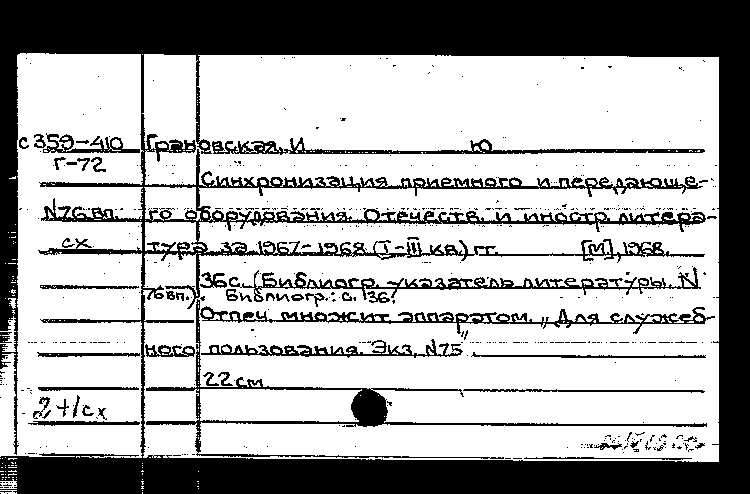 с359-410 Грановская, И Ю
Г-72
Синхронизация приемного и передающе-
N76вп. го оборудования. Отечеств. и иностр. литера-
сх тура за 1967-1968 (I-III кв.) гг. [М], 1968.
36с. (Библиогр. указатель литературы. N
76вп.). Библиогр.: с. 36.
Отпеч. множит. аппаратом. „Для служеб-
ного пользования. Экз. N75".
22см
2+1сх